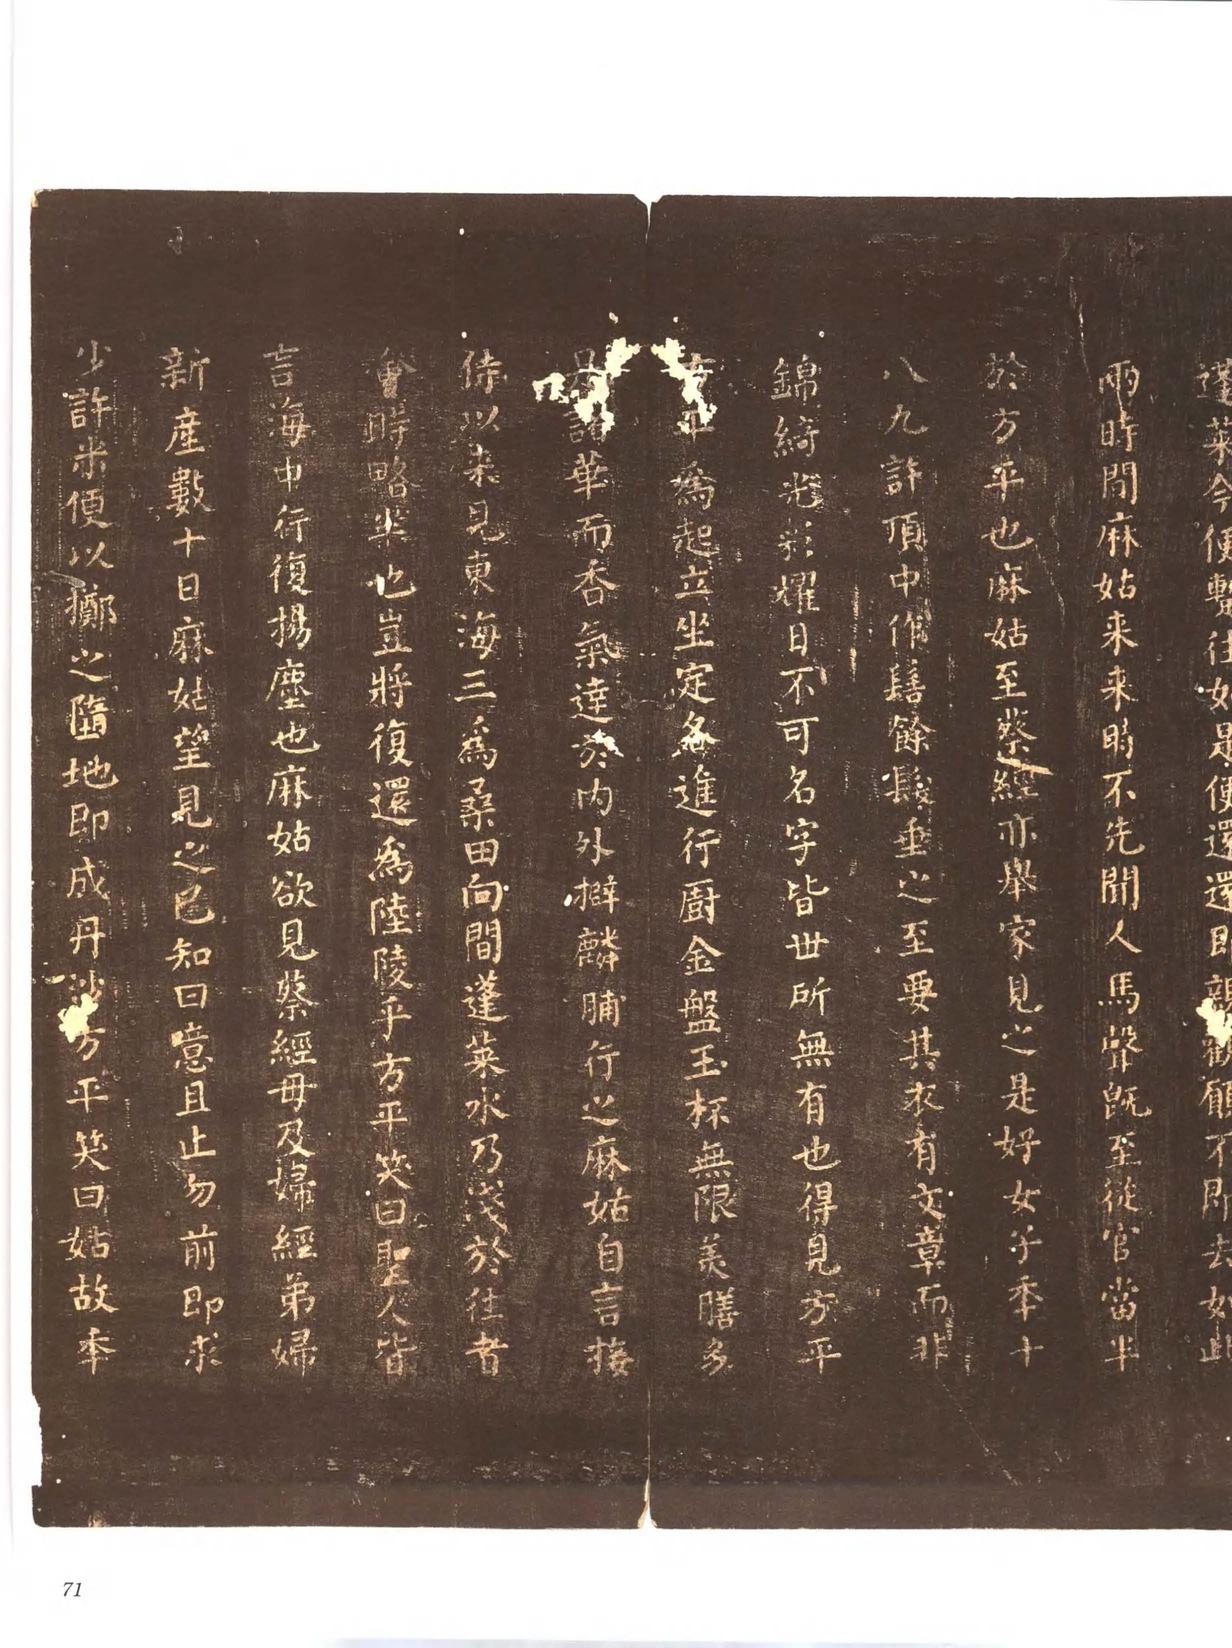 蓬萊今便蹔往如是便還還即親觀願不即去如此
兩時間麻姑来来時不先聞人馬聲既至從官當半
於方平也麻姑至蔡經亦舉家見之是好女子年十
八九許頂中作髻餘髮垂之至要其衣有文章而非
錦綺光彩耀日不可名字皆世所無有也得見方平
方平為起立坐定各進行厨金盤玉杯無限美膳多
是諸華而香氣達於内外擗麟脯行之麻姑自言接
侍以来見東海三為桑田向間蓬萊水乃淺於往者
會時略半也豈將復還為陸陵乎方平笑曰聖人皆
言海中行復揚塵也麻姑欲見蔡經母及婦經弟婦
新產數十日麻姑望見之已知曰噫且止勿前即求
少許米便以擲之墮地即成丹沙方平笑曰姑故年
71